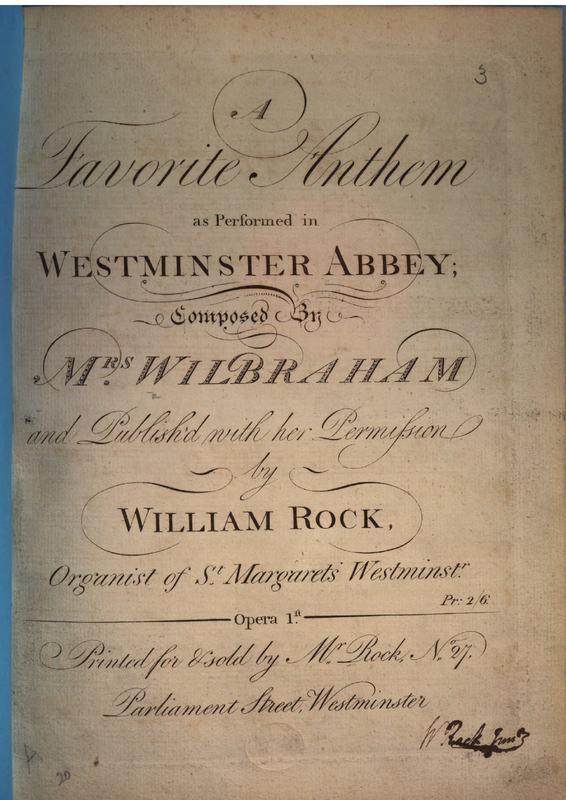 3
A
Favorite Anthem
as Performed in
WESTMINSTER ABBEY;
Composed By
MRS. WILBRAHAM
and Publish'd with her Permission
by
WILLIAM ROCK,
Organist of St. Margarets Westminstr.
Pr: 2/6
Opera 1.a
Printed for & sold by Mr. Rock, No. 27.
Parliament Street, Westminster
W Rock Junr
20